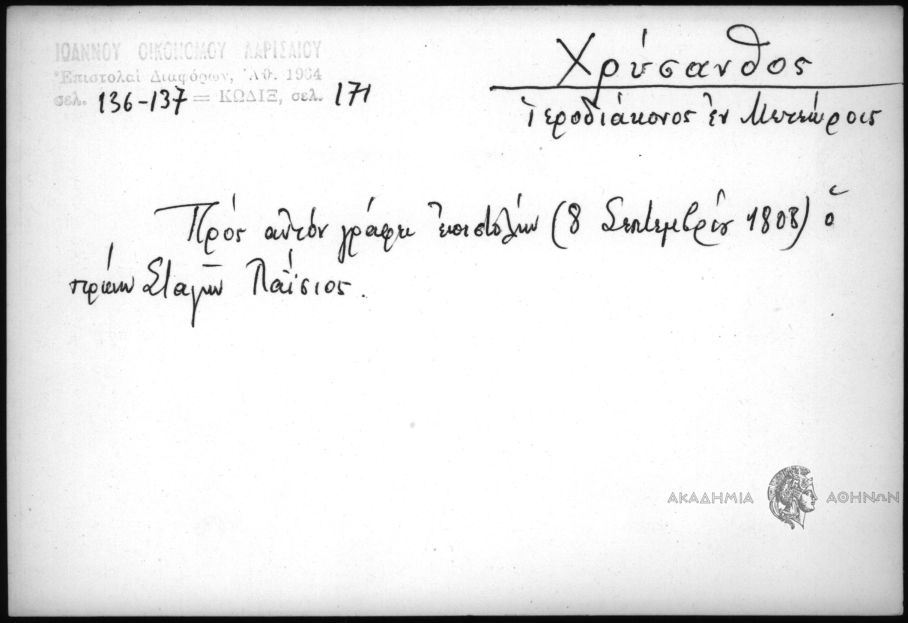 ΙΩΑΝΝΟΥ ΟΙΚΟΝΟΜΟΥ ΛΑΡΙΣΑΙΟΥ
Ἐπιστολαὶ Διαφόρων, Ἀθ. 1964
σελ. 136-137 = ΚΩΔΙΞ, σελ. 171
Χρύσανθος
ἱεροδιάκονος ἐν Μετεώροις
Πρός αὐτόν γράφει ἐπιστολήν (8 Σεπτεμβρίου 1808) ὁ
πρώην Σταγῶν Παΐσιος.
ΑΚΑΔΗΜΙΑ ΑΘΗΝΩΝ